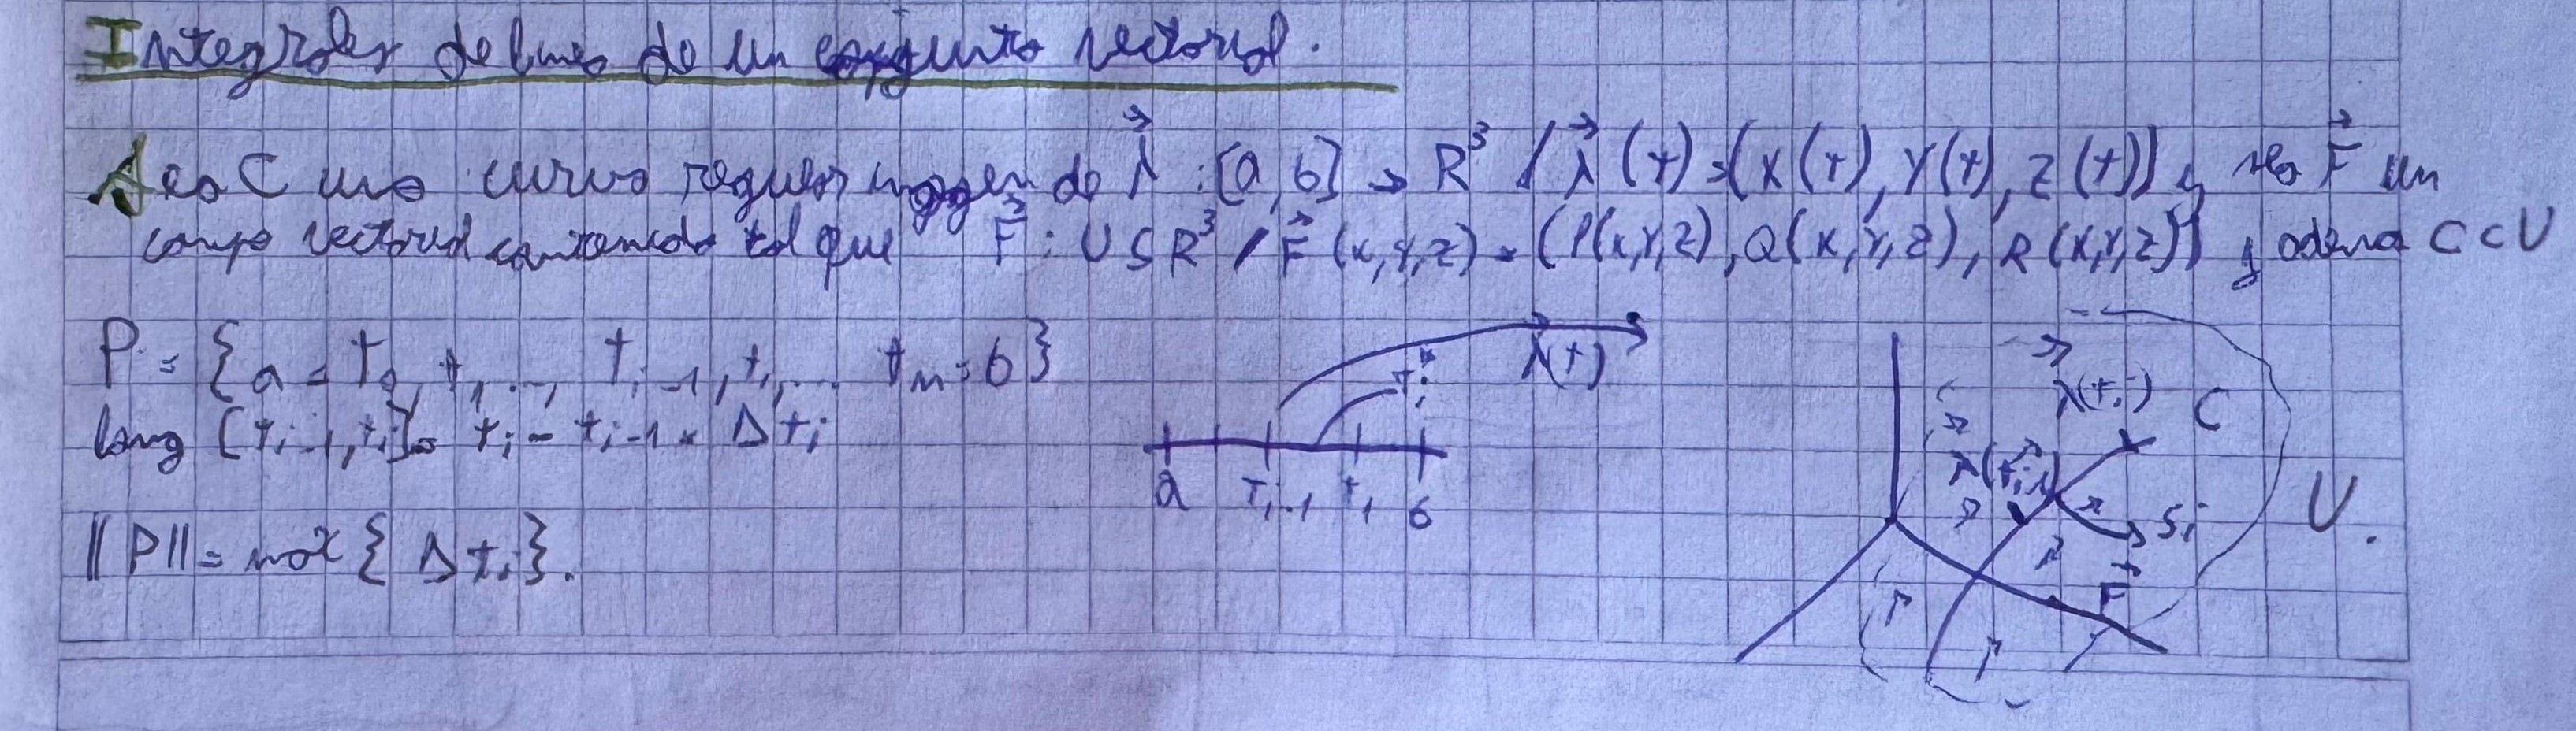 Integrales de linea de un conjunto vectorial.
Sea C una curva regular imagen de λ⃗ : [a,b] → R³ / λ⃗(t) = (X(t), Y(t), Z(t)) y sea F⃗ un
campo vectorial contenido tal que F⃗ : U ⊆ R³ / F⃗(x,y,z) = (P(x,y,z), Q(x,y,z), R(x,y,z)) y ademas C ⊂ U
P = {a = t₀, t₁ ..., tᵢ₋₁, tᵢ, ... tₙ = b}
long [tᵢ₋₁, tᵢ] = tᵢ - tᵢ₋₁ = Δtᵢ
||P|| = max {Δtᵢ}.
tᵢ*
λ⃗(t)
a tᵢ₋₁ tᵢ b
λ⃗(tᵢ)
C
λ⃗(tᵢ₋₁)
Sᵢ
U.
F⃗